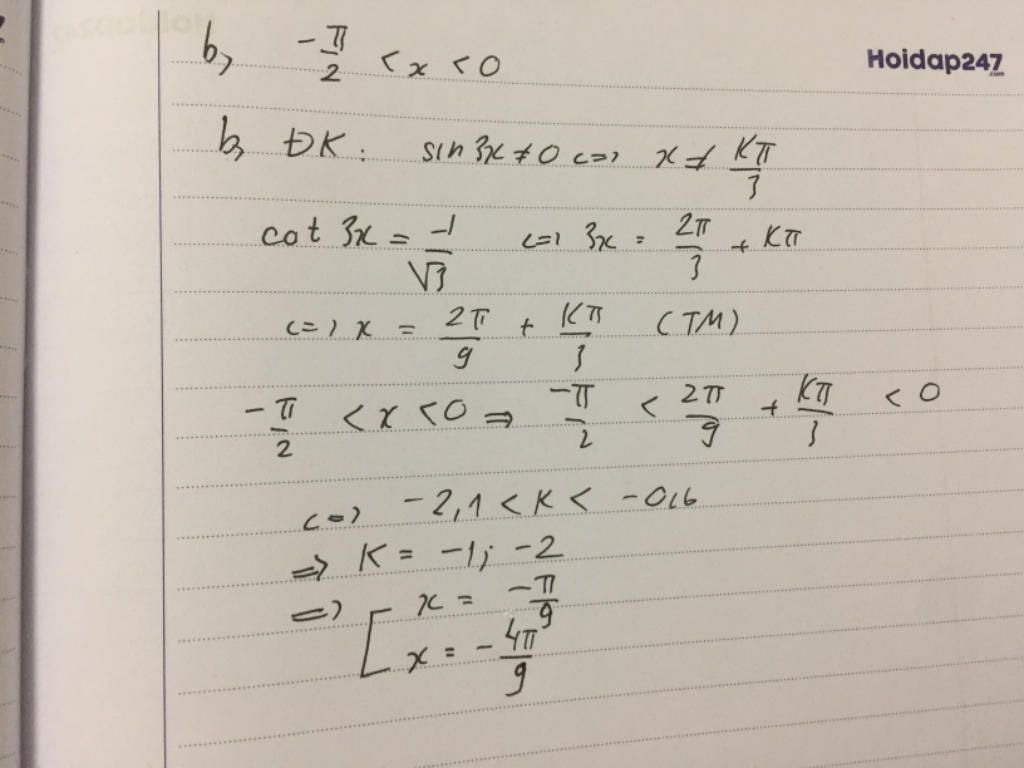 b, -π/2 < x < 0
Hoidap247
.com
b, ĐK: sin 3x ≠ 0 <=> x ≠ Kπ/3
cot 3x = -1/√3 <=> 3x = 2π/3 + Kπ
<=> x = 2π/9 + Kπ/3 (TM)
-π/2 < x < 0 => -π/2 < 2π/9 + Kπ/3 < 0
<=> -2,1 < K < -0,6
=> K = -1; -2
=> [ x = -π/9
x = -4π/9